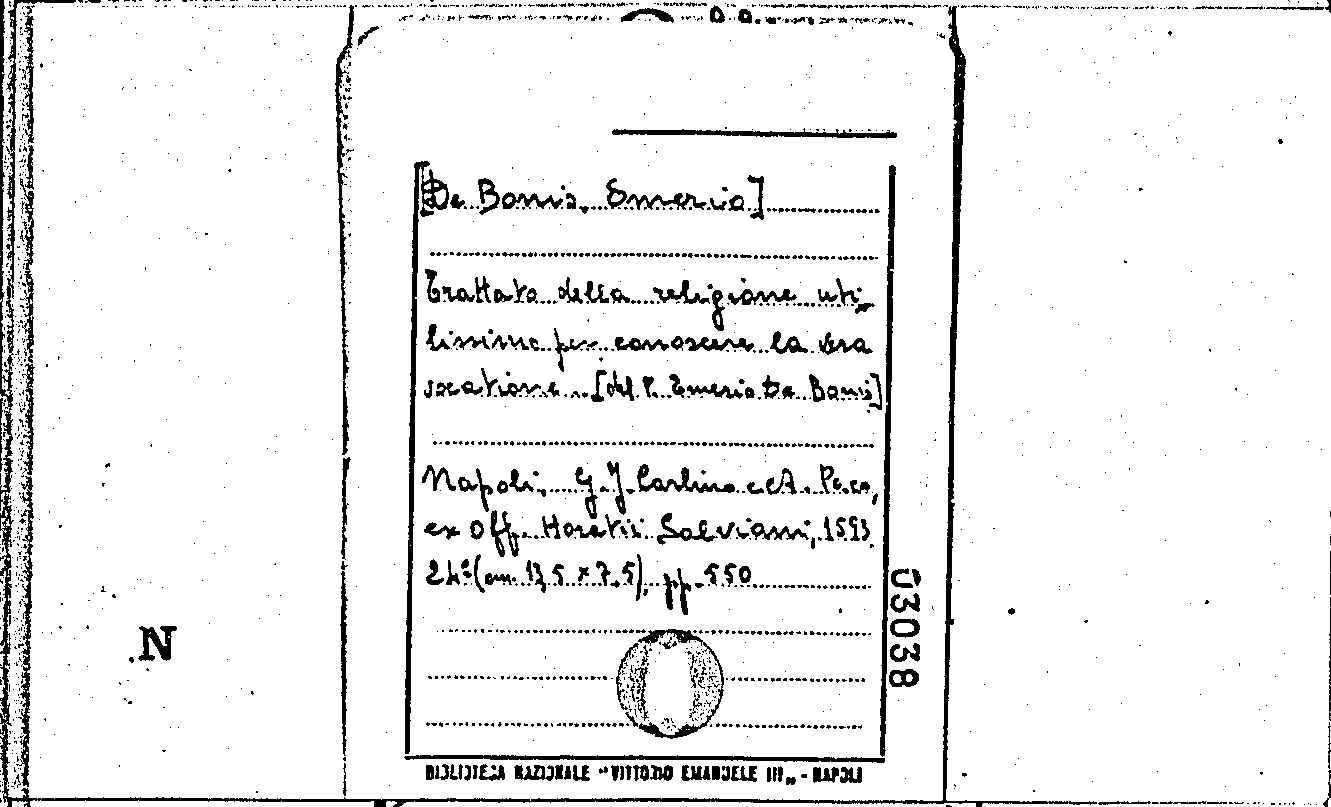 [De Bonis, Emerio]
Trattato della religione uti-
lissimo per conoscere la sua
vocatione... [del P. Emerio De Bonis]
Napoli, G. J. Carlino e A. Pace,
ex Off. Horatii Salviani, 1593
24° (cm. 13,5 x 7,5), pp. 550
03038
N
BIBLIOTECA NAZIONALE "VITTORIO EMANUELE III„ - NAPOLI